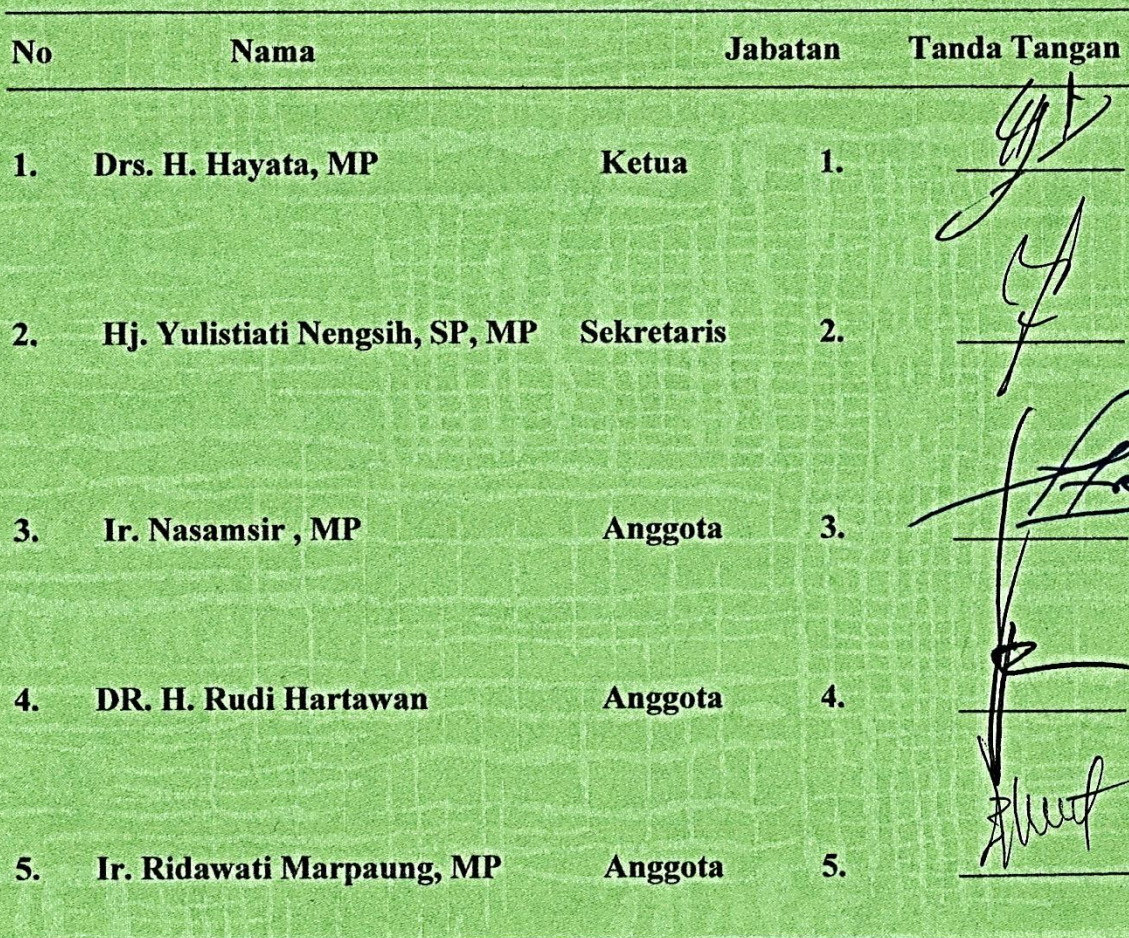 No Nama Jabatan Tanda Tangan
1. Drs. H. Hayata, MP Ketua 1.
2. Hj. Yulistiati Nengsih, SP, MP Sekretaris 2.
3. Ir. Nasamsir , MP Anggota 3.
4. DR. H. Rudi Hartawan Anggota 4.
5. Ir. Ridawati Marpaung, MP Anggota 5.